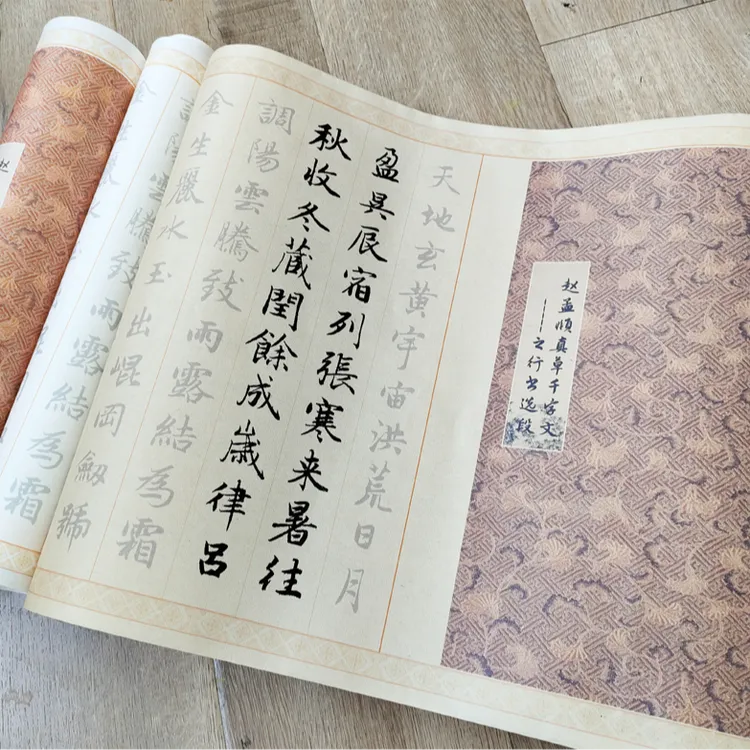 赵孟頫真草千字文
——之行书选段
天地玄黄宇宙洪荒日月
盈昃辰宿列張寒来暑往
秋收冬蔵閏餘成歲律呂
調陽雲騰致雨露結為霜
金生麗水玉出崐岡劔號
致雨露結為霜
赵